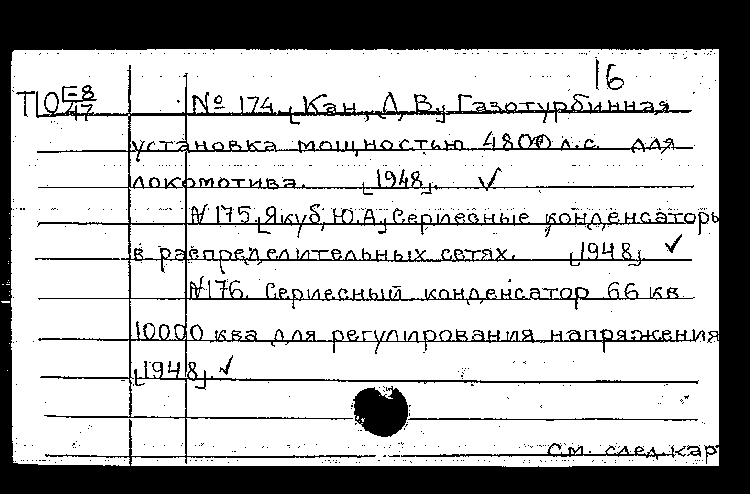 16
П10 Е-8/47 № 174. [Кан, Д, В.] Газотурбинная
установка мощностью 4800 л.с. для
локомотива. [1948]. ✓
№ 175. [Якуб, Ю.А.] Сериесные конденсаторы
в распределительных сетях. [1948] ✓
№ 176. Сериесный конденсатор 66 кв
10000 ква для регулирования напряжения
[1948]. ✓
См. след. кар